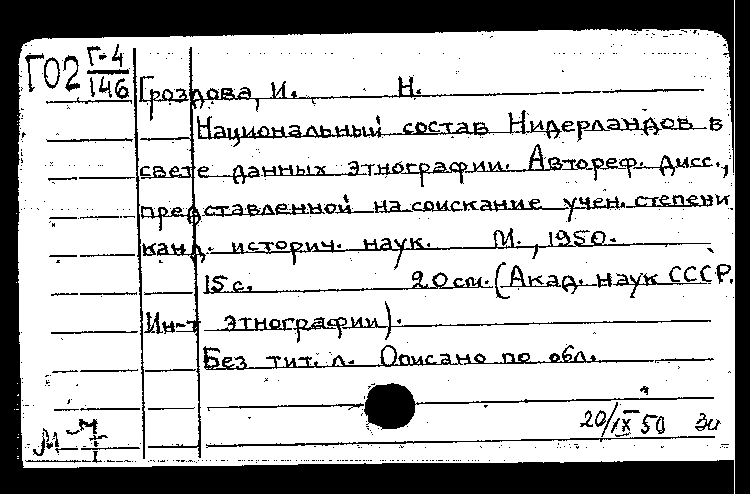 ГО2 Г-4
146
Гроздова, И. Н.
Национальный состав Нидерландов в
свете данных этнографии. Автореф. дисс.,
представленной на соискание учен. степени
канд. историч. наук. М., 1950.
15 с. 20 см. (Акад. наук СССР.
Ин-т этнографии).
Без тит. л. Описано по обл.
20/IX 50